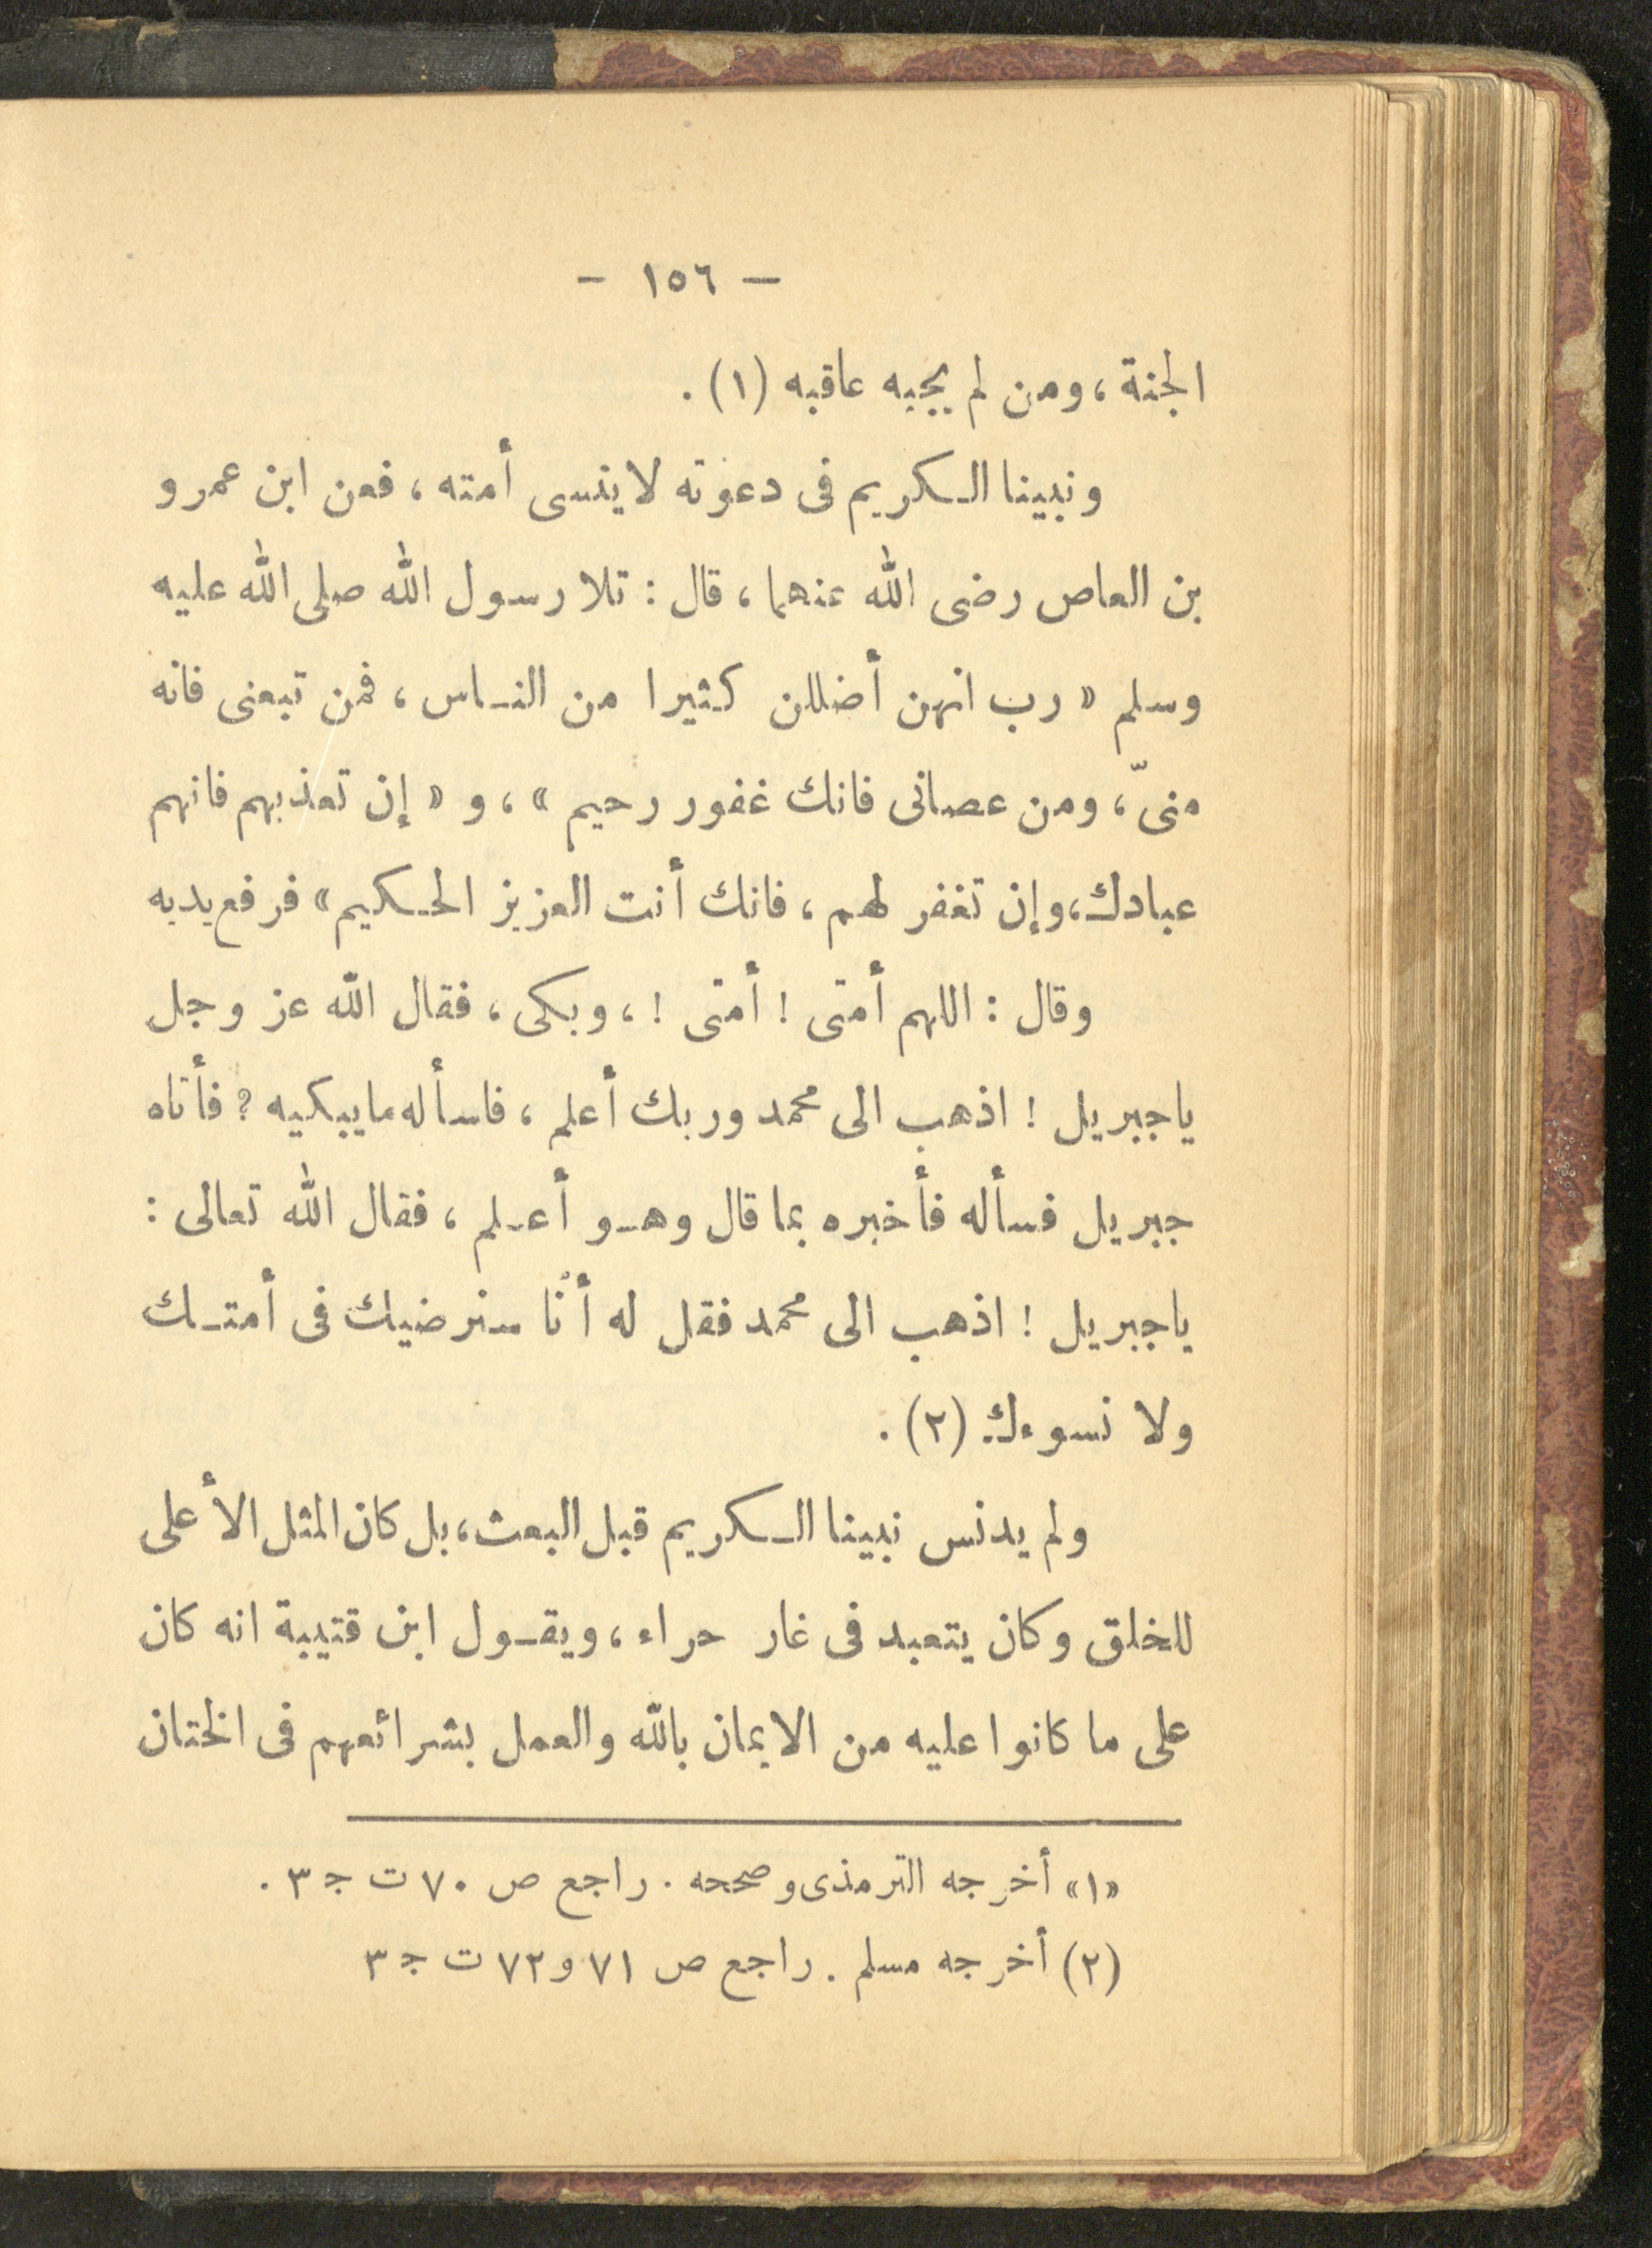 – ١٥٦ –
الجنة ، ومن لم يجبه عاقبه (١) .
ونبينا الكريم فى دعوته لاينسى أمته ، فعن ابن عمرو
بن العاص رضى الله عنهما ، قال : تلا رسول الله صلى الله عليه
وسلم « رب انهن أضللن كثيرا من الناس ، فمن تبعنى فانه
منىّ ، ومن عصانى فانك غفور رحيم » ، و « إن تعذبهم فانهم
عبادك ، وإن تغفر لهم ، فانك أنت العزيز الحكيم » فرفع يديه
وقال : اللهم أمتى ! أمتى ! ، وبكى ، فقال الله عز وجل
ياجبريل ! اذهب الى محمد وربك أعلم ، فاسأله مايبكيه ؟ فأتاه
جبريل فسأله فأخبره بما قال وهو أعلم ، فقال الله تعالى :
ياجبريل ! اذهب الى محمد فقل له أنا سنرضيك فى أمتك
ولا نسوءك (٢) .
ولم يدنس نبينا الكريم قبل البعث ، بل كان المثل الأعلى
للخلق وكان يتعبد فى غار حراء ، ويقول ابن قتيبة انه كان
على ما كانوا عليه من الايمان بالله والعمل بشرائعهم فى الختان
«١» أخرجه الترمذى وصححه . راجع ص ٧٠ ت ج ٣ .
(٢) أخرجه مسلم . راجع ص ٧١ و ٧٢ ت ج ٣